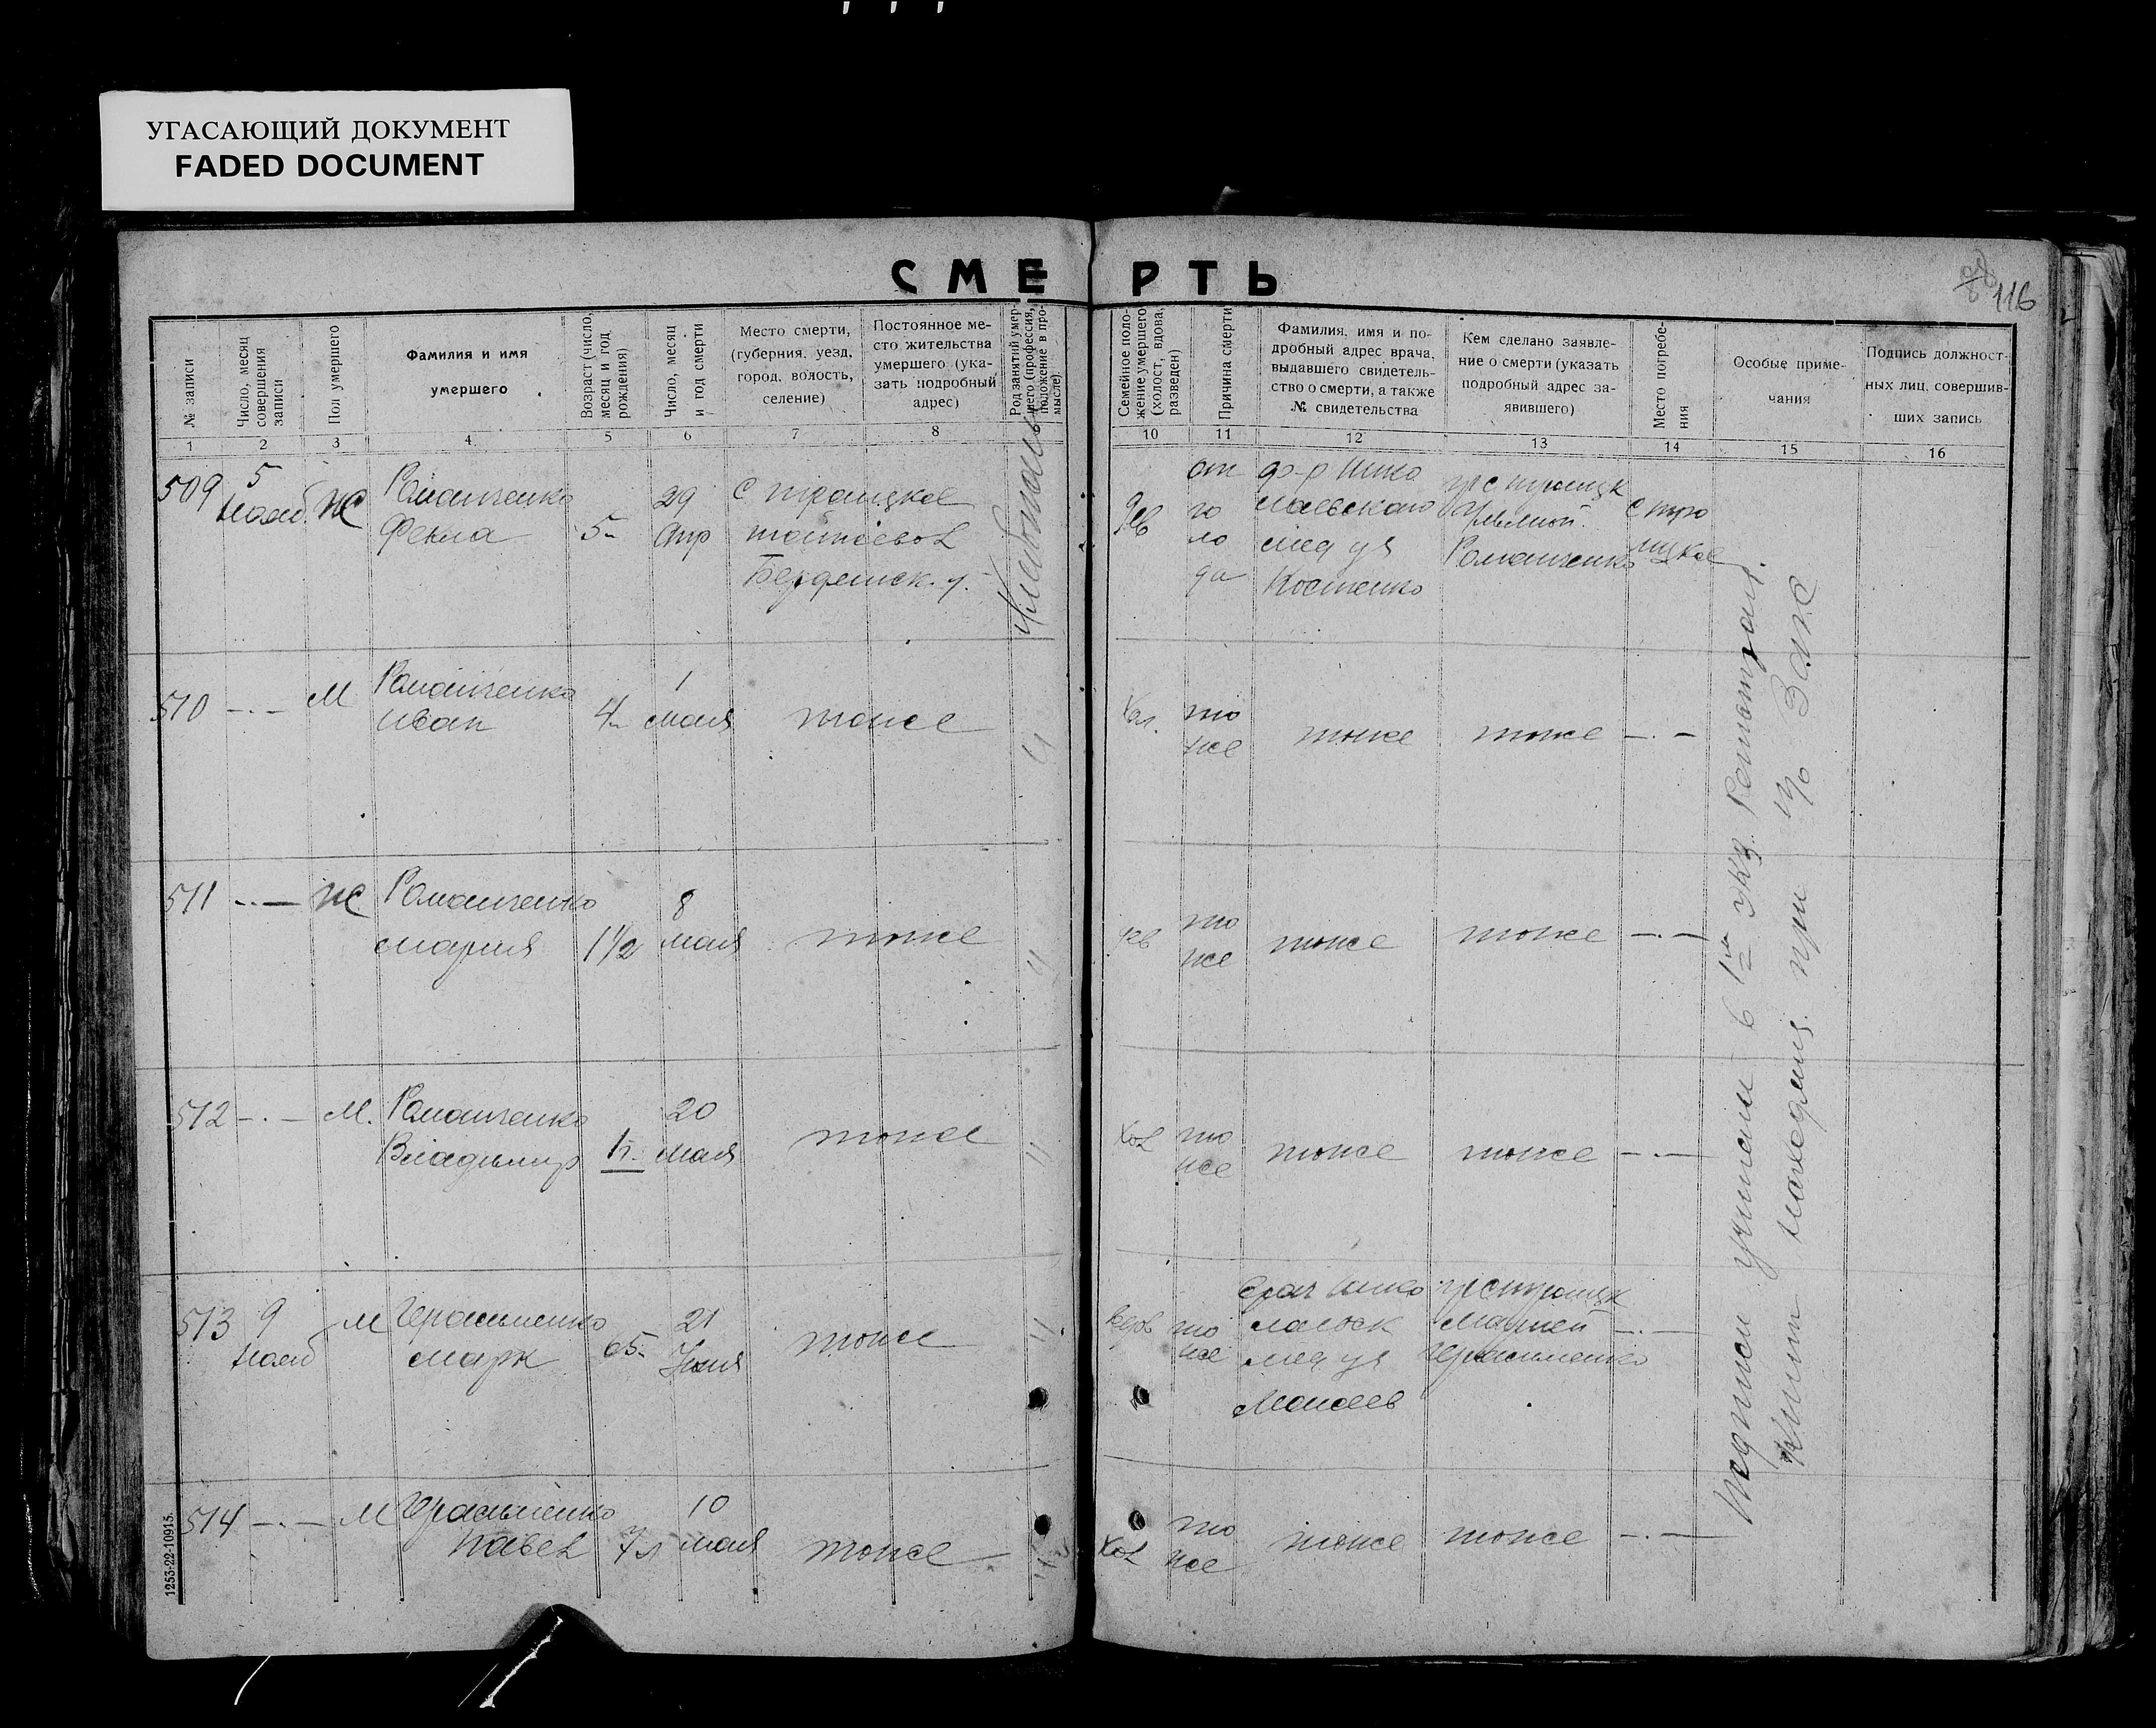 УГАСАЮЩИЙ ДОКУМЕНТ
FADED DOCUMENT
СМЕРТЬ
116
№ записи
Число, месяц совершения записи
Пол умершего
Фамилия и имя
умершего
Возраст (число, месяц и год рождения)
Число, месяц и год смерти
Место смерти,
(губерния, уезд,
город, волость,
селение)
Постоянное ме-
сто жительства
умершего (ука-
зать подробный
адрес)
Род занятий умер-
шего (профессия,
положение в про-
мысле).
Семейное поло-
жение умершего
(холост, вдова,
разведен)
Причина смерти
Фамилия, имя и по-
дробный адрес врача,
выдавшего свидетель-
ство о смерти, а также
№ свидетельства
Кем сделано заявле-
ние о смерти (указать
подробный адрес за-
явившего)
Место погребе-
ния
Особые приме-
чания
Подпись должност-
ных лиц, совершив-
ших запись
1 2 3 4 5 6 7 8 10 11 12 13 14 15 16
509 5 Нояб. Ж Романченко Фекла 5 29 Апр с Троицкое
Бердянск. у.
Хлебопаш
Дев от го ло да
ф-р Нико лаевского мед уч Костенко
гр с Троицк
Романченко
с Тро ицкое
510 -.- М Романченко Иван 4 1 мая тоже "
Хол. то же тоже тоже -.-
511 -.- Ж Романченко Мария 1½ 8 мая тоже "
дев то же тоже тоже -.-
512 -.- М. Романченко Владимир 20 мая тоже "
Хол то же тоже тоже -.-
513 9 Нояб М Герасименко Марк 65 21 Июня тоже "
вдов то же
врач Нико лаевск мед уч Моисеев
гр с Троицк
Герасименко
-.-
514 -.- М Герасименко Павел 7 л 10 мая тоже "
Хол то же тоже тоже -.-
Подписи учинали в 1м экз. Регистрац.
Книги находящ. при Загс
1253-22-10915.